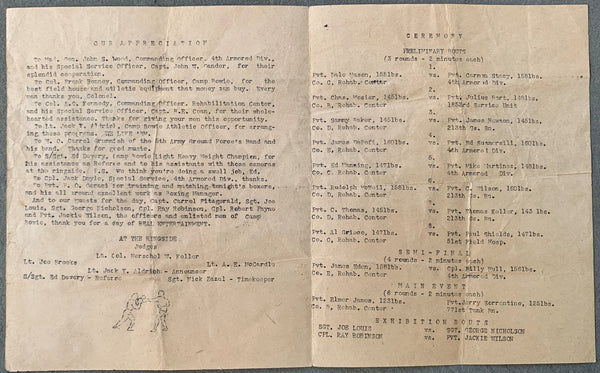 OUR APPRECIATION
To Maj. Gen. John S. Wood, Commanding Officer, 4th Armored Div.,
and his Special Service Officer, Capt. John W. for their
splendid cooperation.
To Col. Frank Commanding Officer, Camp Bowie, for the
best field house and athletic equipment that money can buy. Every
man thanks you, Colonel.
To Col. S.G. Kennedy, Commanding Officer, Rehabilitation Center,
and his Special Service Officer, Capt. W.E. Coun, for their whole-
hearted assistance. Thanks for giving your men this opportunity.
To Lt. Jack Y. Aldrich, Camp Bowie Athletic Officer, for arrang-
ing these programs.
To W. O. Carrol of the 5th Army Ground Force's Band and
his band. Thanks for good music.
To S/Sgt. Ed Devery, Camp Bowie Light Heavy Weight Champion, for
his assistance as Referee and to his assistants with those cameras
at the ringside. P.S. We think you're doing a swell job, Ed.
To Cpl. Jack Doyle, Special Service, 4th Armored Div., thanks.
To Pvt. P. O. for training and matching tonight's boxers,
and his all around excellent work as Boxing Manager.
And to our guests for the day, Capt. Carrol Fitzgerald, Sgt. Joe
Louis, Sgt. George Nicholson, Cpl. Ray Robinson, Cpl. Robert Payne
and Pvt. Jackie Wilson, the officers and enlisted men of Camp
Bowie, thank you for a day of REAL ENTERTAINMENT.
AT THE RINGSIDE
Judges
Lt. Col. Herschel W. Feller
Lt. Joe Brooks Lt. A. E. McCardle
Lt. Jack Y. Aldrich - Announcer
S/Sgt. Ed Devery - Referee Sgt. Nick Zazal - Timekeeper
CEREMONY
PRELIMINARY BOUTS
(3 rounds - 2 minutes each)
1.
Pvt. Dale Mason, 155lbs. vs. Pvt. Carson Stacy, 156lbs.
Co. C, Rehab. Center 4th Armored Div.
2.
Pvt. Chas. Mosier, 145lbs. vs. Pvt. Julius Bart, 148lbs.
Co. B, Rehab. Center 1853rd Service Unit
3.
Pvt. Sammy Baker, 145lbs. vs. Pvt. James Rowson, 145lbs.
Co. D, Rehab. Center 213th Gs. Bn.
4.
Pvt. James 160lbs. vs. Pvt. Ed Summerell, 160lbs.
Co. E, Rehab. Center 4th Armored Div.
5.
Pvt. Ed Manning, 147lbs. vs. Pvt. Mike Martinez, 148lbs.
Co. C, Rehab. Center 4th Armored Div.
6.
Pvt. Rudolph 158lbs. vs. Pvt. C. Wilson, 160lbs.
Co. D, Rehab. Center 213th Gs. Bn.
7.
Pvt. C. Thomas, 145lbs. vs. Pvt. Thomas Keller, 145 lbs.
Co. D, Rehab. Center 213th Gs. Bn.
8.
Pvt. Al Grisco, 147lbs. vs. Pvt. Paul Shields, 147lbs.
Co. C, Rehab. Center 51st Field Hosp.
SEMI-FINAL
(4 rounds - 2 minutes each)
Pvt. James Eden, 158lbs. vs. Cpl. Billy Bull, 156lbs.
Co. E, Rehab. Center 4th Armored Div.
MAIN EVENT
(6 rounds - 2 minutes each)
Pvt. Elmer James, 123lbs. vs. Pvt. Jerry Sorrentino, 125lbs.
Co. D, Rehab. Center 771st Tank Bn.
EXHIBITION BOUTS
SGT. JOE LOUIS vs. SGT. GEORGE NICHOLSON
CPL. RAY ROBINSON vs. PVT. JACKIE WILSON